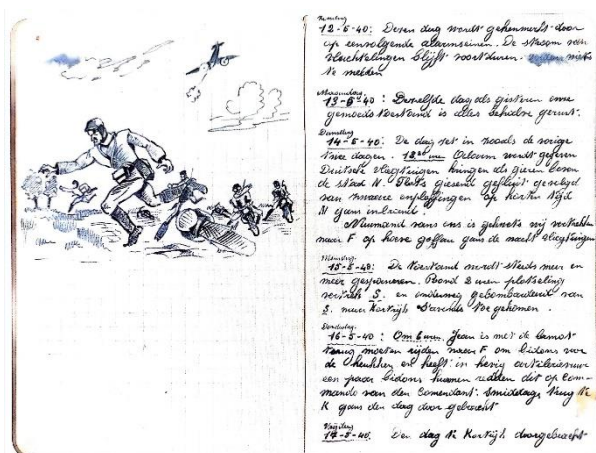 Zondag
12-5-40: Dezen dag wordt gekenmerkt door
op eenvolgende alarmseinen. De stroom van
vluchtelingen blijft voortduren. verder niets
te melden
Maandag
13-5-40: Dezelfde dag als gisteren onze
gemoedstoestand is alles behalve gerust.
Dinsdag
14-5-40: De dag zet in zooals de vorige
twee dagen. uur Alarm wordt gegeven
Duitsche vliegtuigen hangen als gieren boven
de stad K. Plots gierend gefluit gevolgd
van zware ontploffingen op korten tijd
gans in brand
Niemand van ons is gekwetst wij vertrekken
naar F op gans de nacht vliegtuigen
Woensdag
15-5-40: De toestand wordt steeds meer en
meer gespannen. Rond 2 uren plotseling
vertrek S. en onderweg gebombardeerd van
S. naar Kortrijk S'avonds toe gekomen.
Donderdag
16-5-40: Om 6 uren. Jean is met de camion
terug moeten rijden naar F om bidons voor
de keukken en heeft in hevig artilerievuur
een paar bidons kunnen redden dit op Com-
mando van den Comendant. smiddags terug te
K gans den dag door gebracht
Vrijdag
17-5-40. Den dag te Kortrijk doorgebracht